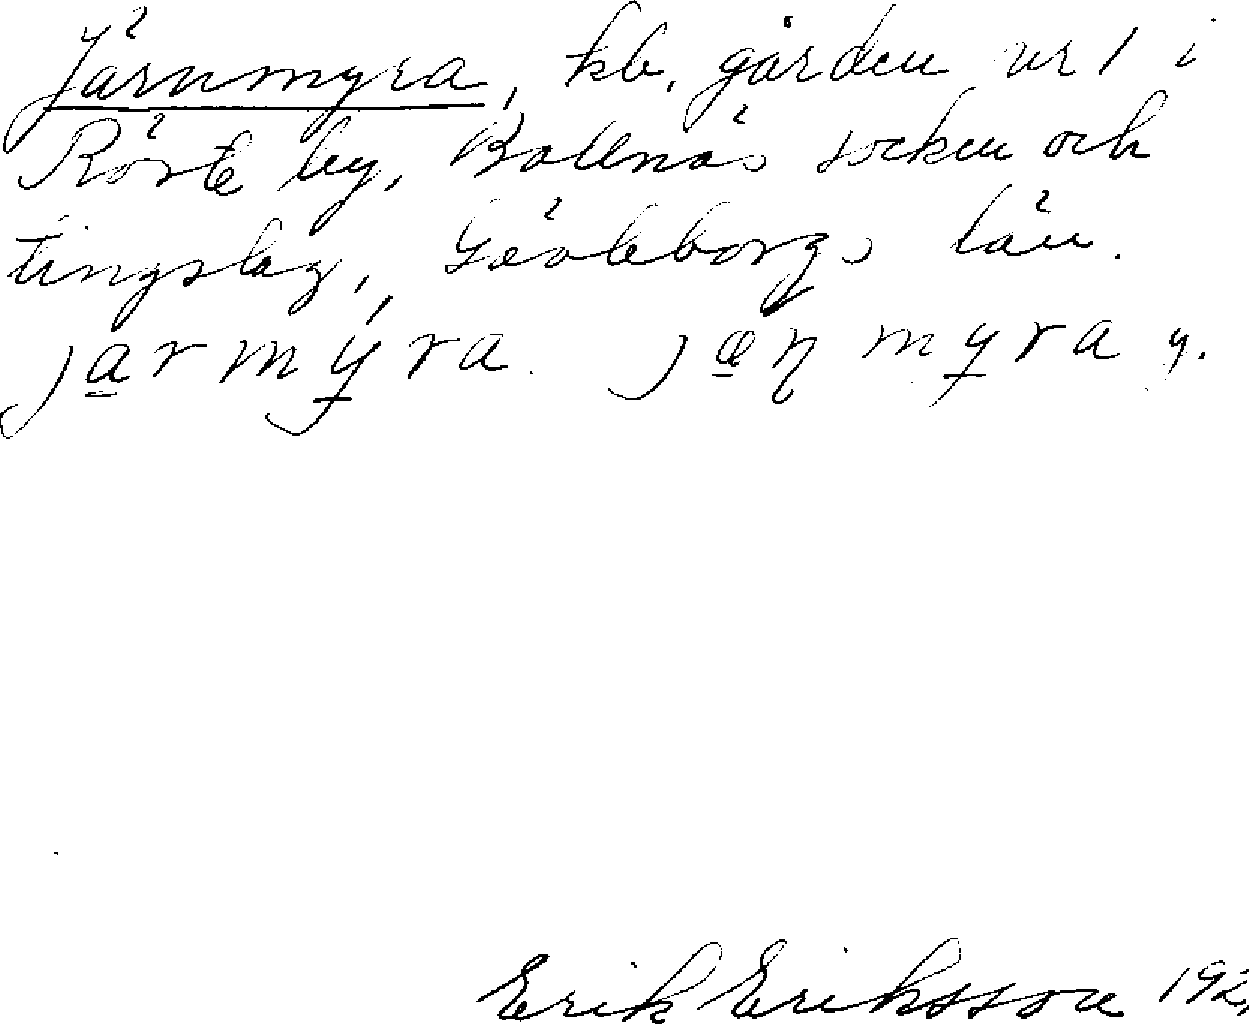 Järnmyra, kb, gården nr 1 i
Röste by, Bollnäs socken och
tingslag, Gävleborgs län.
jarmý̵ra. jæɳmy̵ra y.
Erik Eriksson 192